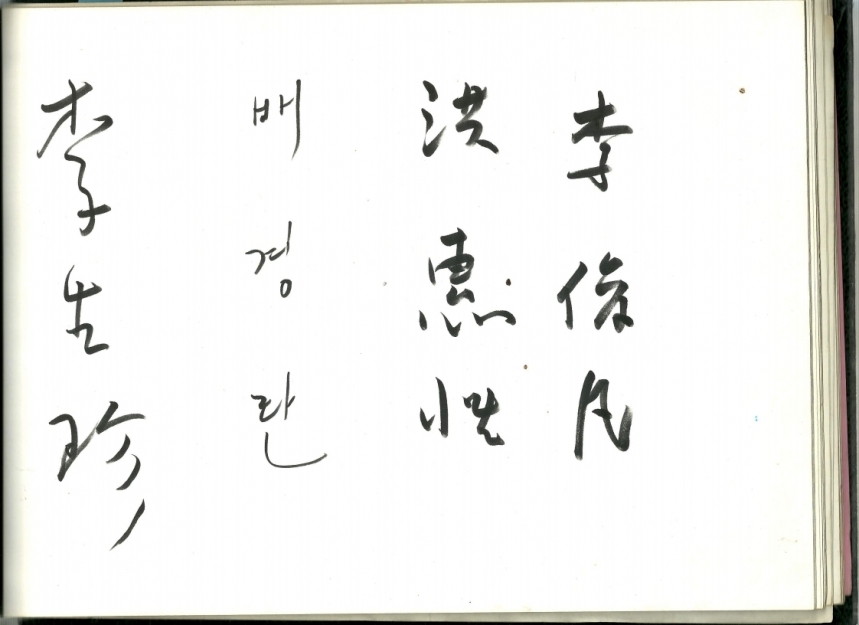 李俊
洪惠性
배경란
李生珍